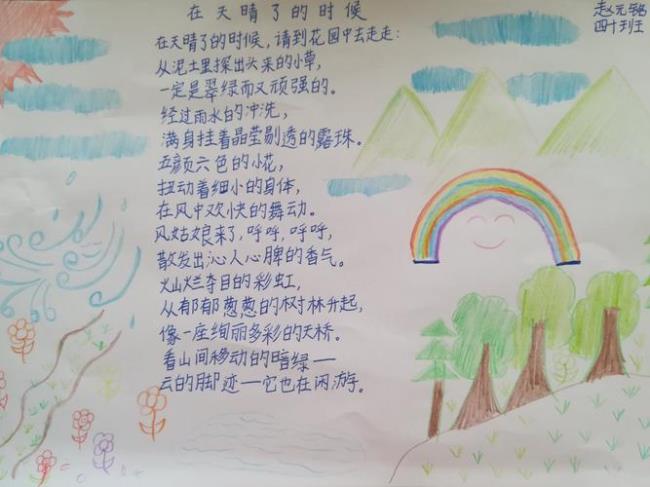 在天晴了的时候
赵元
四十班
在天晴了的时候,请到花园中去走走:
从泥土里探出头来的小草,
一定是翠绿而又顽强的。
经过雨水的冲洗,
满身挂着晶莹剔透的露珠。
五颜六色的小花,
扭动着细小的身体,
在风中欢快的舞动。
风姑娘来了,呼呼,呼呼,
散发出沁人心脾的香气。
灿烂夺目的彩虹,
从郁郁葱葱的树林升起,
像一座绚丽多彩的天桥。
看山间移动的暗绿——
云的脚迹——它也在闲游。